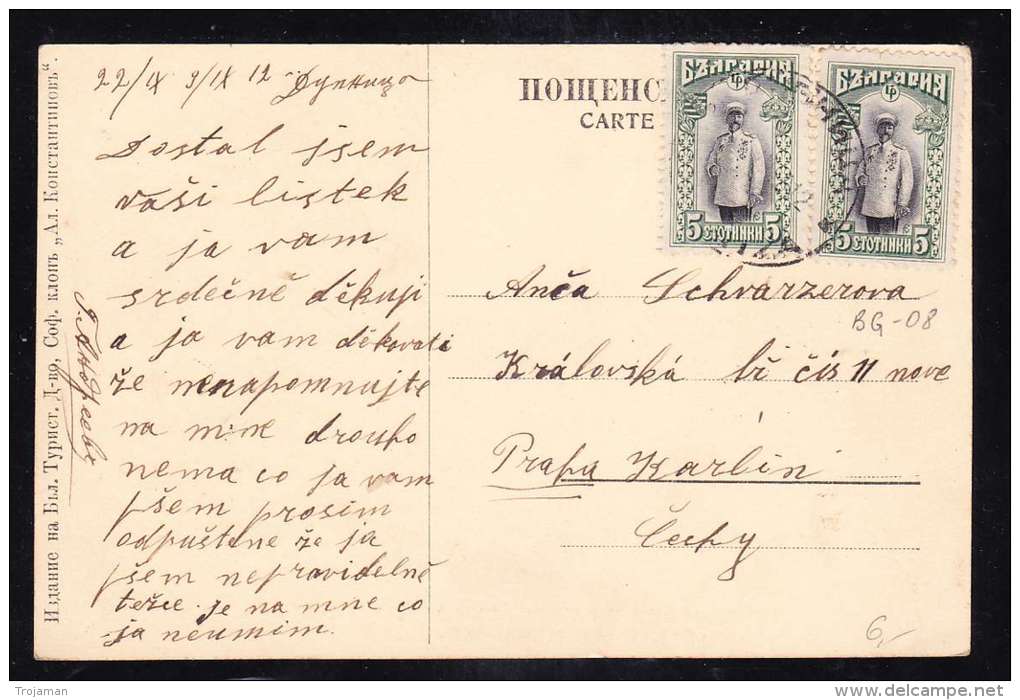 22/IX 9/IX 12 Дупница
Dostal jsem
vaši listek
a ja vam
srdečně děkuji
a ja vam děkovati
že nenapomnujte
na mne drouho
nema co ja vam
pšem prosim
odpuštene že ja
pšem nepravidelně
težce je na mne co
ja neumim.
Издание на Бъл. Турист. Д-во, Соф. клонъ „Ал. Константиновъ“.
ПОЩЕНС
CARTE
БЪЛГАРИЯ
5 СТОТИНКИ 5
БЪЛГАРИЯ
5 СТОТИНКИ 5
Anča Schvarzerova
BG-08
Královská bř čís 11 nove
Praha Karlin
Čechy
6,-
Trojaman
delcampe.net